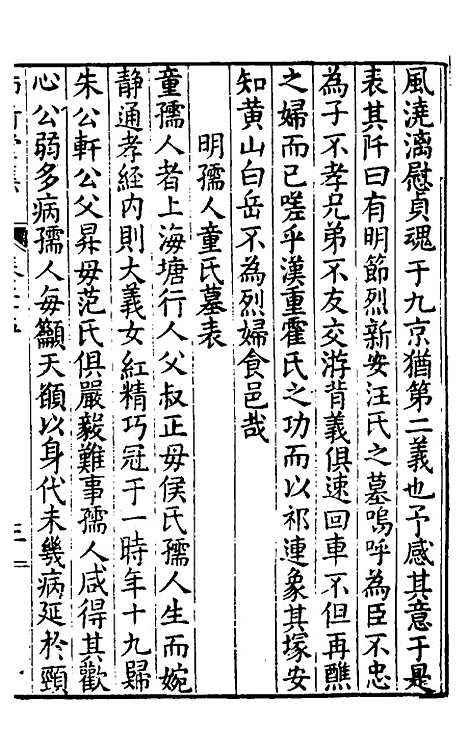 風澆漓慰貞魂于九京猶第二義也予感其意于是
表其阡曰有明節烈新安汪氏之墓嗚呼為臣不忠
為子不孝兄弟不友交游背義俱速回車不但再醮
之婦而已嗟乎漢重霍氏之功而以祁連象其塚安
知黃山白岳不為烈婦食邑哉
明孺人童氏墓表
童孺人者上海塘行人父叔正毋侯氏孺人生而婉
静通孝經内則大義女紅精巧冠于一時年十九歸
朱公軒公父昇毋范氏俱嚴毅難事孺人咸得其歡
心公弱多病孺人每籲天額以身代未幾病延於頸